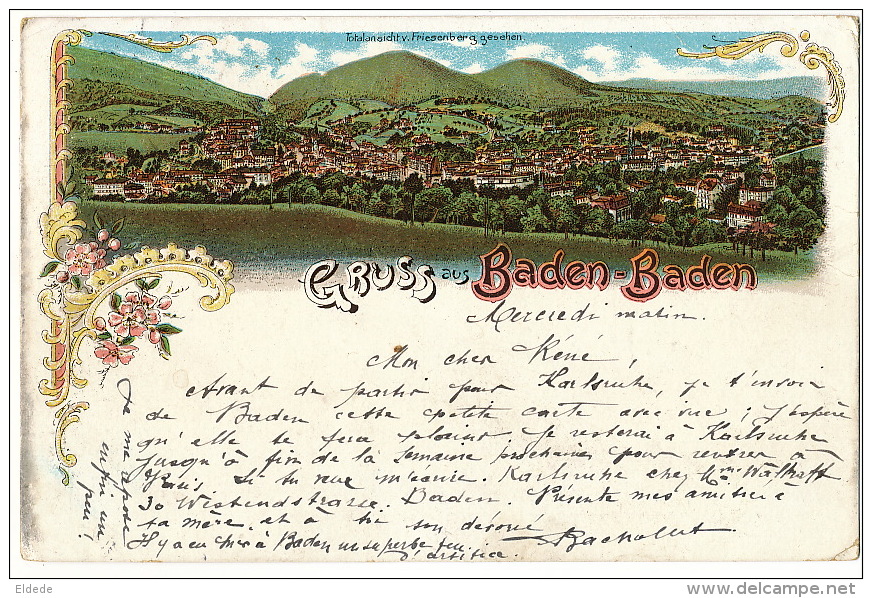 Totalansicht v. Friesenberg gesehen.
Gruss aus Baden-Baden
Mercredi matin.
Mon cher Réné,
Avant de partir pour Karlsruhe, je t'envoie
de Baden cette petite carte avec vue ; j'espère
qu'elle te fera plaisir. Je resterai à Karlsruhe
jusqu'à fin de la semaine prochaine pour rentrer à
Paris. Si tu veux m'écrire. Karlsruhe chez Mme Walthaff
30 Westendstrasse. Baden. Présente mes amitiés à
ta mère, et à toi son dévoué
Il y a eu hier à Baden un superbe feu
d'artifice.
Je me repose
enfin un
peu !
Eldede
delcampe.net